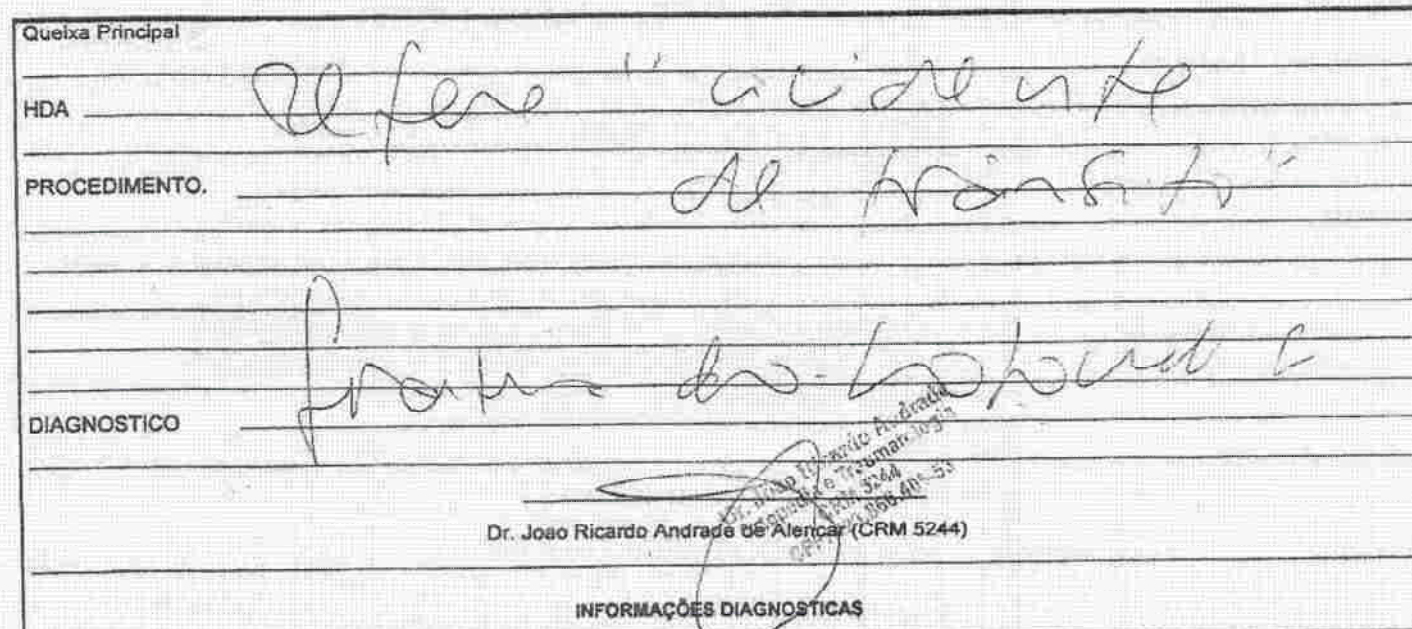 Queixa Principal
refere "acidente
HDA
de trânsito"
PROCEDIMENTO.
fratura
DIAGNOSTICO
Dr. João Ricardo Andrade
Ortopedia e Traumatologia
CRM 5244
Dr. Joao Ricardo Andrade de Alencar (CRM 5244)
INFORMAÇÕES DIAGNOSTICAS